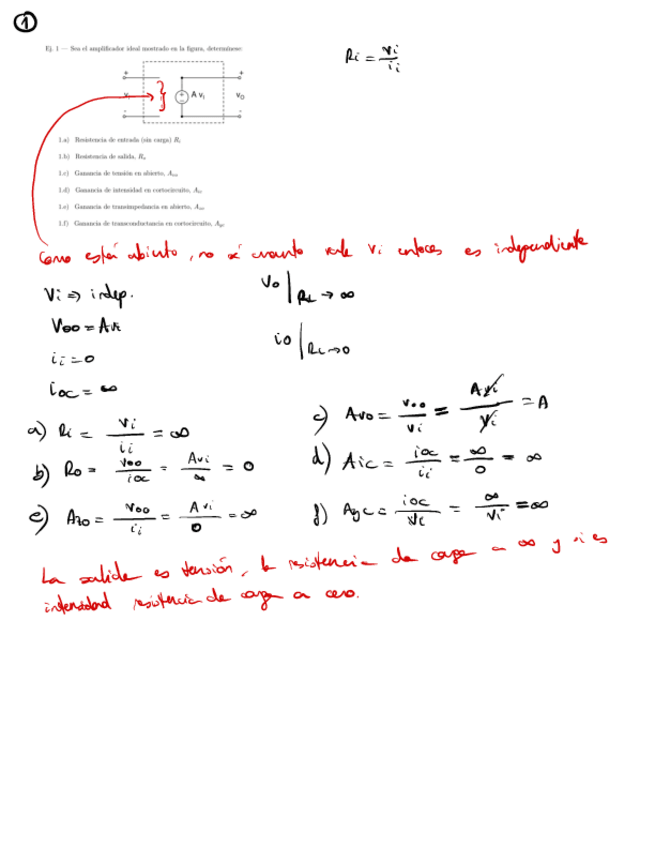 1
Ej. 1 — Sea el amplificador ideal mostrado en la figura, determínese:
Ri = vi / ii
+ +
vi A vi vo
- -
1.a) Resistencia de entrada (sin carga) Ri
1.b) Resistencia de salida, Ro
1.c) Ganancia de tensión en abierto, Avo
1.d) Ganancia de intensidad en cortocircuito, Aic
1.e) Ganancia de transimpedancia en abierto, Azo
1.f) Ganancia de transconductancia en cortocircuito, Ayc
Como está abierto, no sé cuanto vale vi entonces es independiente
Vi => indep.
Vo | RL → ∞
Voo = Avi
ii = 0
io | RL → 0
ioc = ∞
a) Ri = vi / ii = ∞
b) Ro = voo / ioc = Avi / ∞ = 0
c) Avo = voo / vi = Avi / vi = A
d) Aic = ioc / ii = ∞ / 0 = ∞
e) Azo = voo / ii = A vi / 0 = ∞
f) Ayc = ioc / vi = ∞ / vi = ∞
La salida es tensión, la resistencia de carga a ∞ y si es
intensidad resistencia de carga a cero.